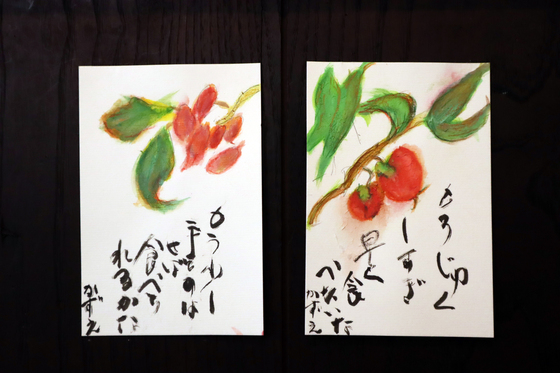 もう少し
手をのば
せば
食べら
れるかな
かずえ
もうじゅく
しすぎ
早く
食
べたいな
かずえ